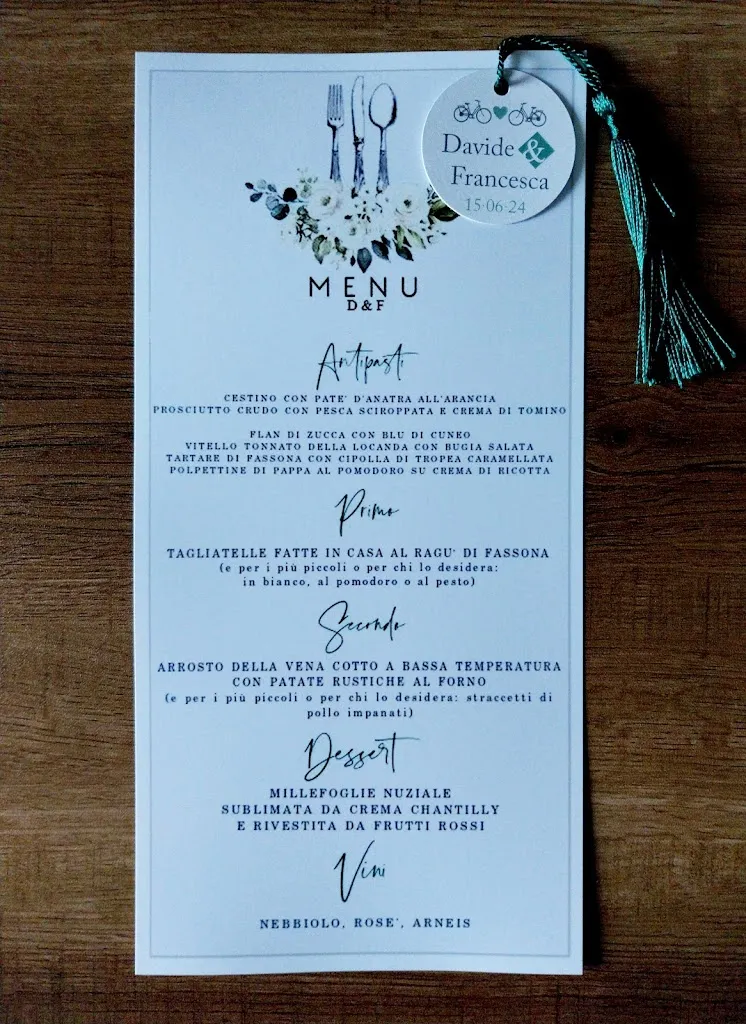 Davide &
Francesca
15-06-24
MENU
D&F
Antipasti
CESTINO CON PATE' D'ANATRA ALL'ARANCIA
PROSCIUTTO CRUDO CON PESCA SCIROPPATA E CREMA DI TOMINO
FLAN DI ZUCCA CON BLU DI CUNEO
VITELLO TONNATO DELLA LOCANDA CON BUGIA SALATA
TARTARE DI FASSONA CON CIPOLLA DI TROPEA CARAMELLATA
POLPETTINE DI PAPPA AL POMODORO SU CREMA DI RICOTTA
Primo
TAGLIATELLE FATTE IN CASA AL RAGU' DI FASSONA
(e per i più piccoli o per chi lo desidera:
in bianco, al pomodoro o al pesto)
Secondo
ARROSTO DELLA VENA COTTO A BASSA TEMPERATURA
CON PATATE RUSTICHE AL FORNO
(e per i più piccoli o per chi lo desidera: straccetti di
pollo impanati)
Dessert
MILLEFOGLIE NUZIALE
SUBLIMATA DA CREMA CHANTILLY
E RIVESTITA DA FRUTTI ROSSI
Vini
NEBBIOLO, ROSE', ARNEIS